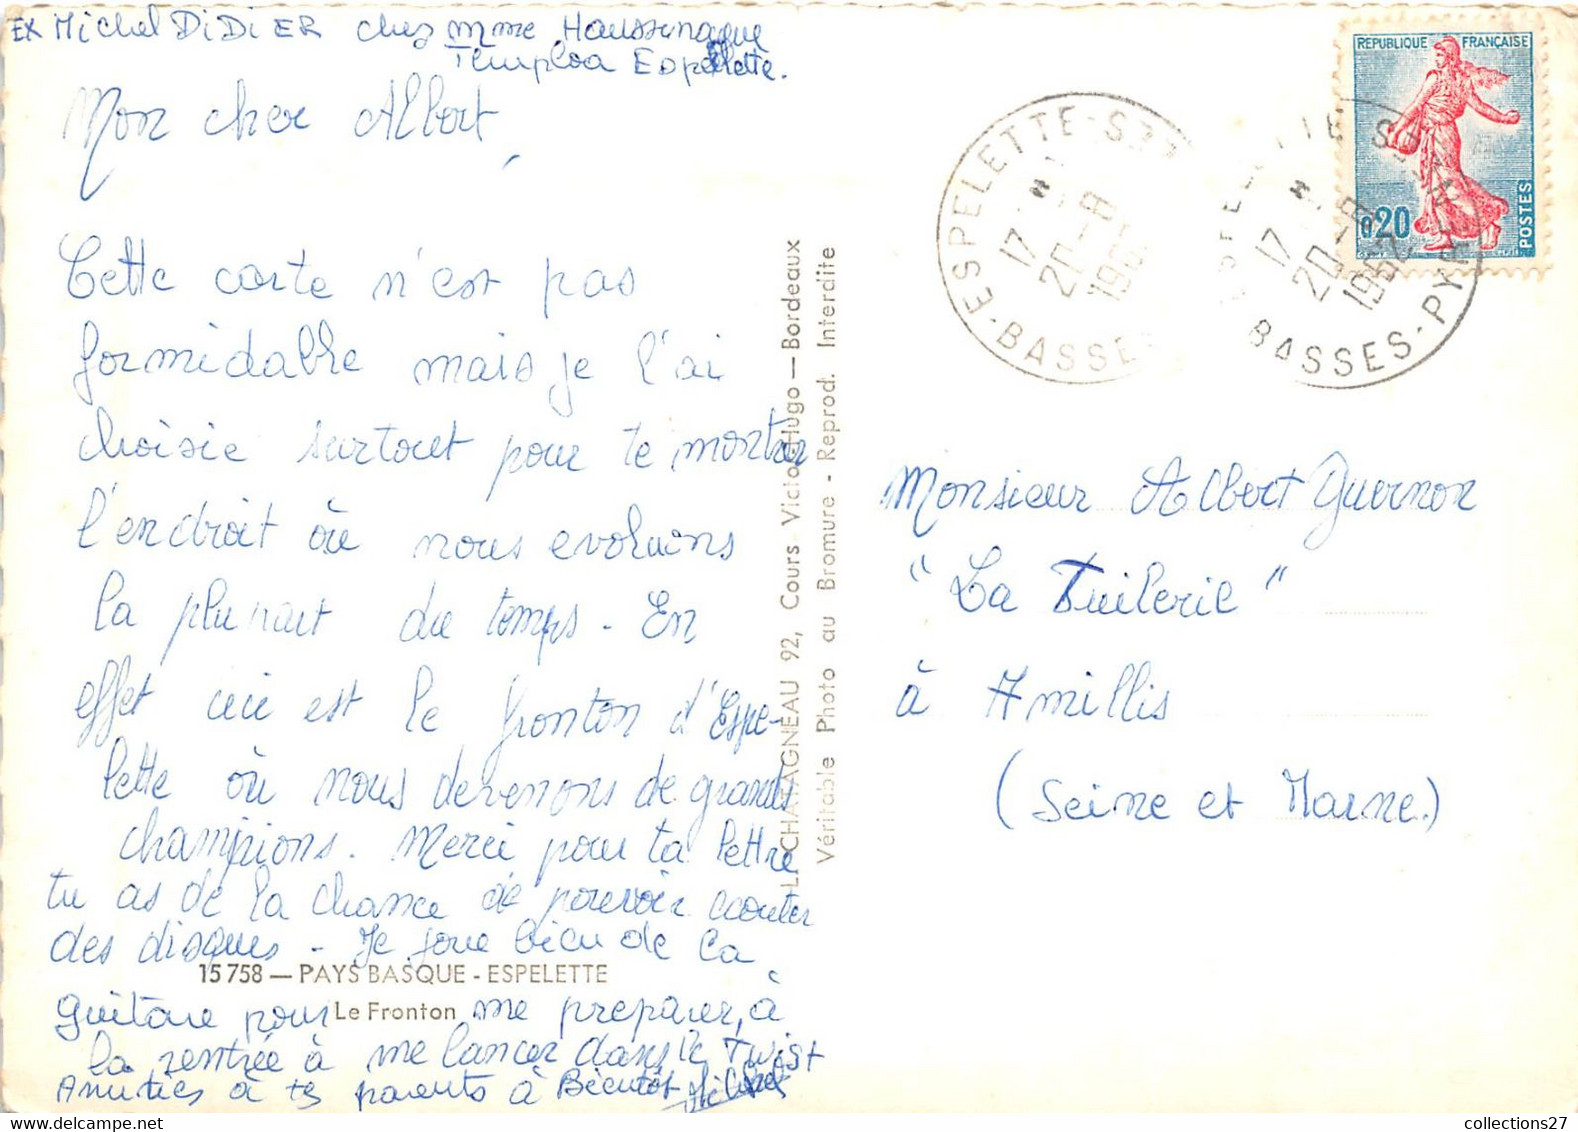 Ex Michel DiDiER chez Mme Haussenague
Espelette.
Mon cher Albert,
Cette carte n'est pas
formidable mais je l'ai
choisie surtout pour te montrer
l'endroit où nous evoluons
la plupart du temps. En
effet ceci est le fronton d'Espe-
lette où nous devenons de grands
champions. Merci pour ta lettre
tu as de la chance de pouvoir ecouter
des disques - Je joue bien de la
guitare pour me preparer, à
la rentrée à me lancer dans le Twist
Amitiés à tes parents à Bientôt Michel
15 758 — PAYS BASQUE - ESPELETTE
Le Fronton
CHATAGNEAU 92, Cours Victor Hugo — Bordeaux
Véritable Photo au Bromure - Reprod. Interdite
REPUBLIQUE FRANÇAISE
0,20
POSTES
ESPELETTE
17
20-8
1962
BASSES
ESPELETTE
17
20-8
1962
BASSES-PYRENEES
Monsieur Albert Guernon
"La Tuilerie"
à Amillis
(Seine et Marne.)
collections27